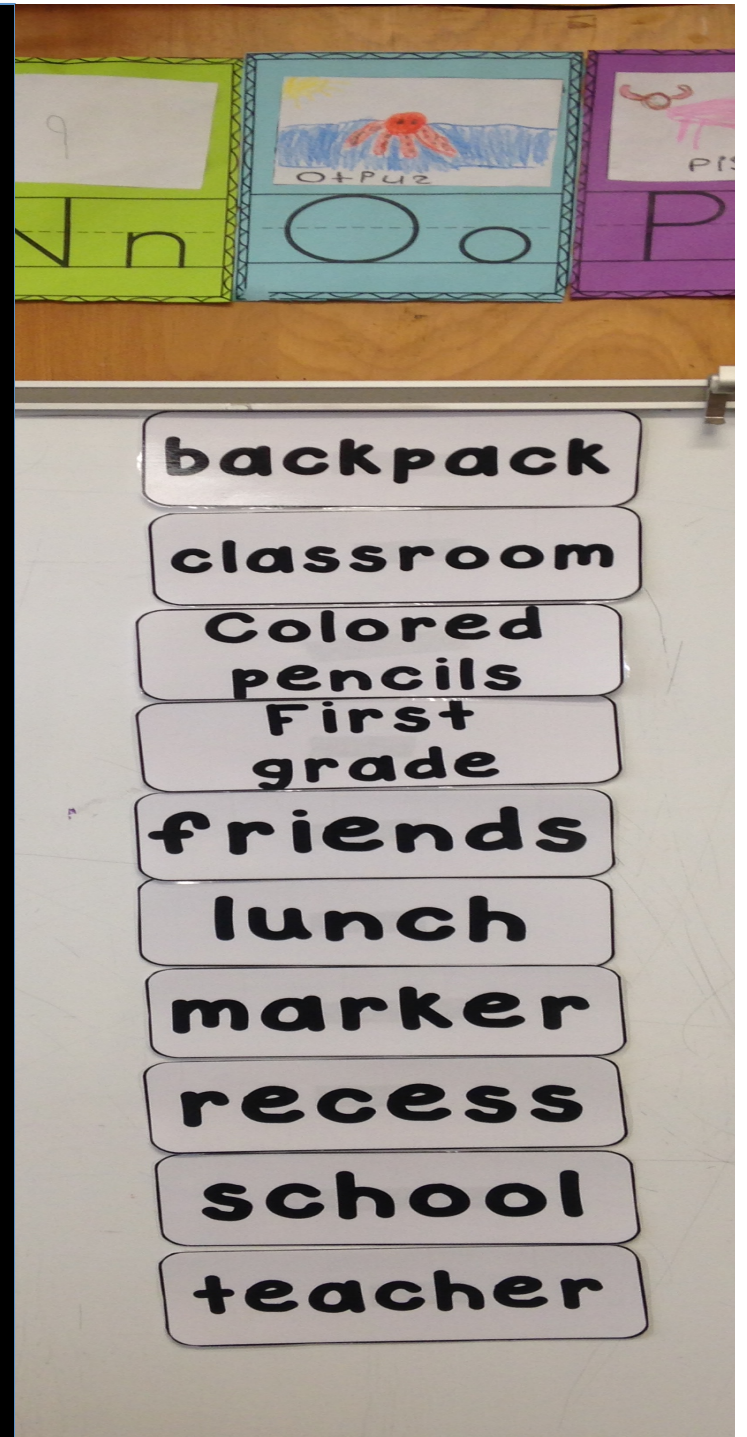 9
otpuz
Nn
Oo
P
backpack
classroom
Colored
pencils
First
grade
friends
lunch
marker
recess
school
teacher